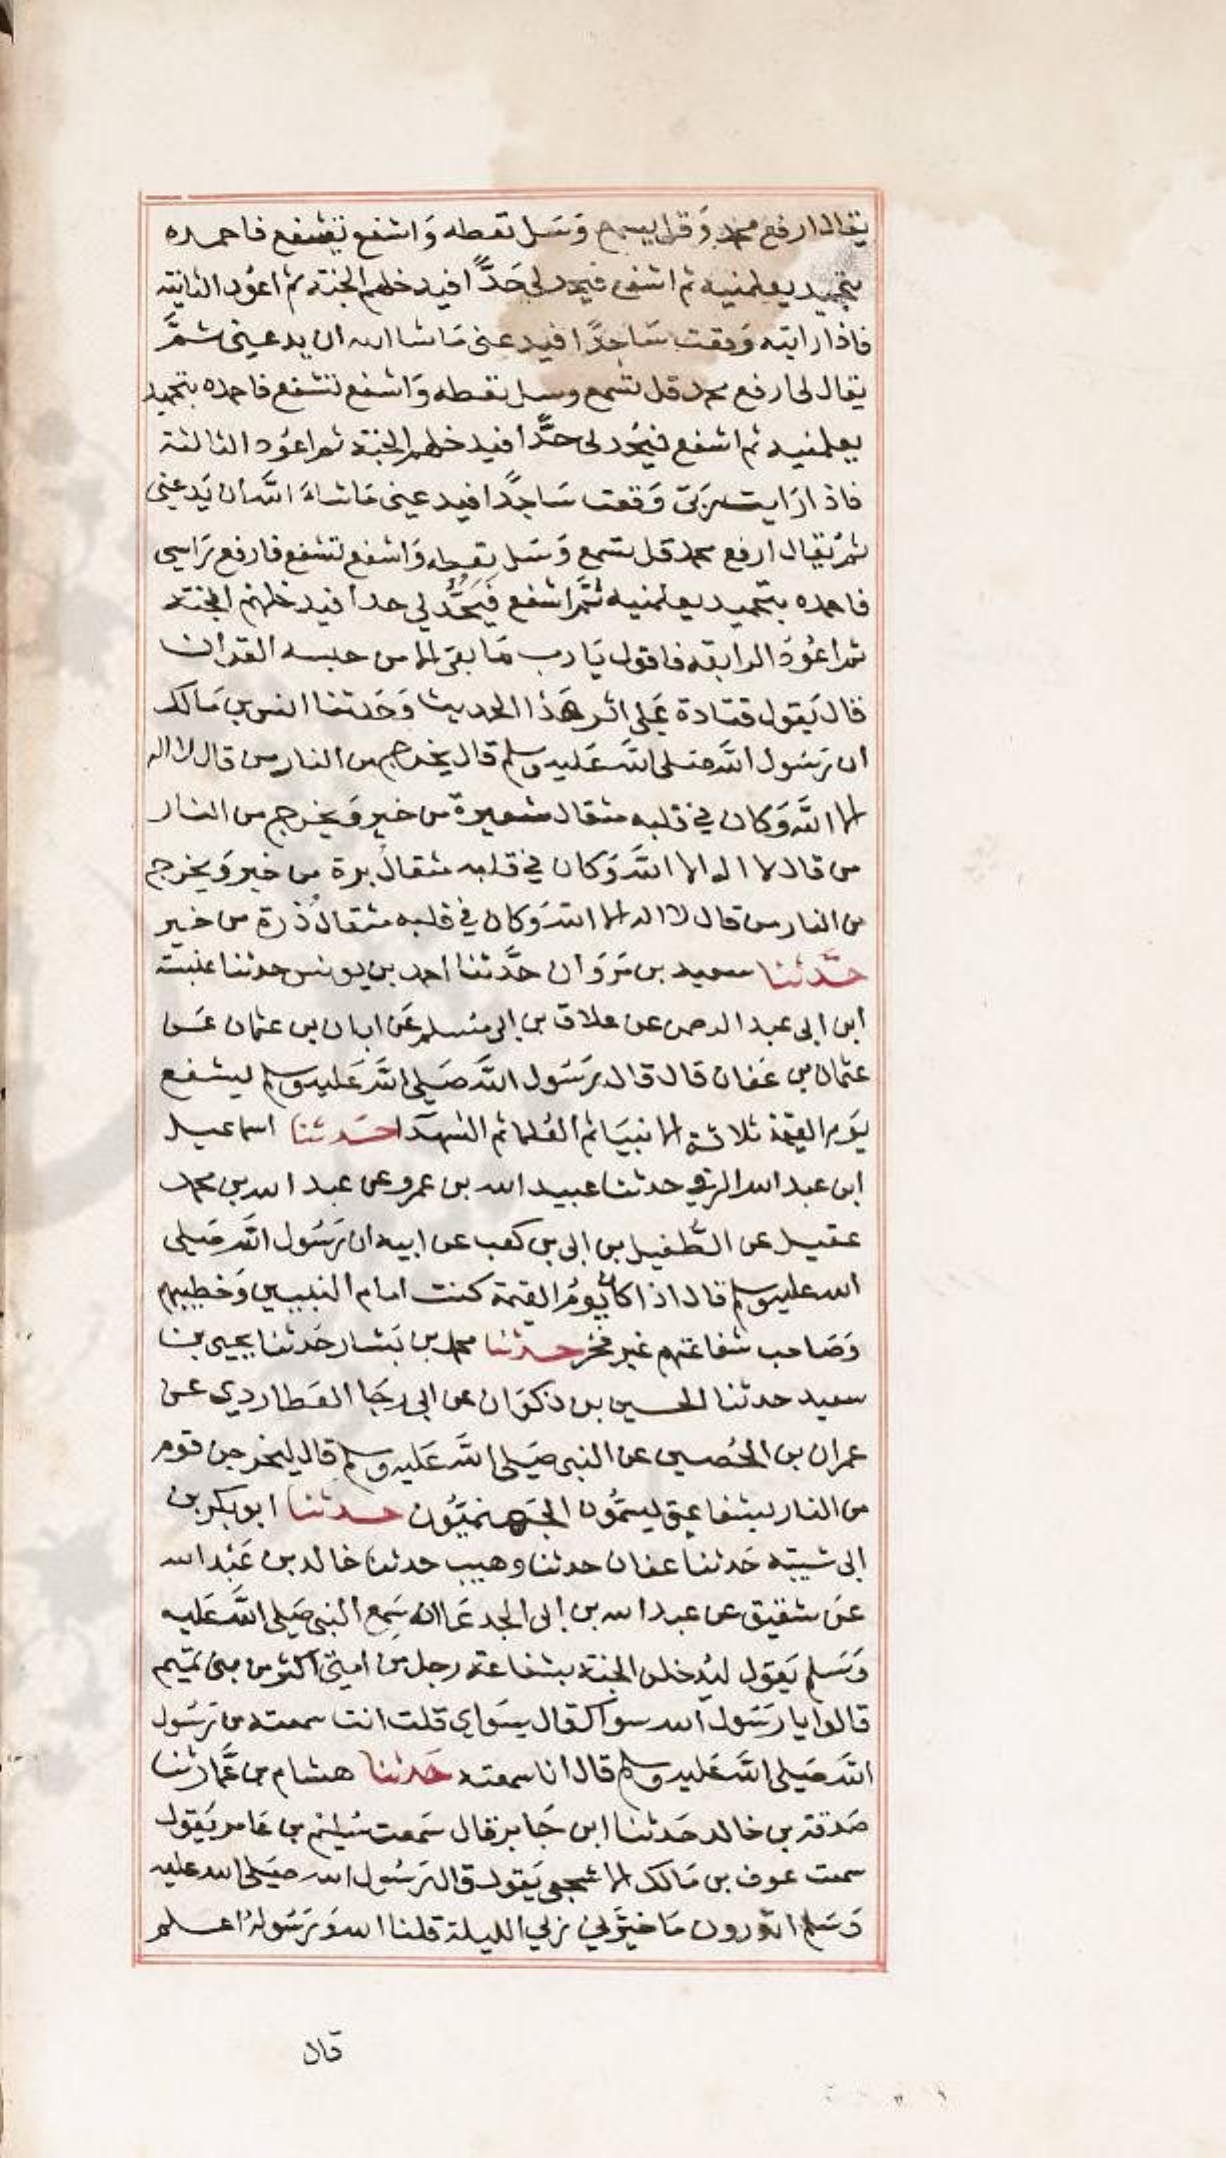 يقال ارفع محمد وقل يسمع وَسَل تعطه وَاشفع تشفع فاحمده
بتحميد يعلمنيه ثم اشفع فيحد لي حَدًّا فيدخلهم الجنة ثم اعُود الثانية
فاذا رايته وَقعت سَاجدًا فيدعني مَا شا الله ان يدعني ثمَّ
يقال لى ارفع محمد قل تسمع وسل تعطه وَاشفع تشفع فاحمده بتحميد
يعلمنيه ثم اشفع فيحُد لى حدًّا فيدخلهم الجنة ثم اعُود الثالثة
فاذا رَايت رَبى وَقعت سَاجدًا فيدعني مَا شاءَ اللَّه ان يَدعني
ثمَّ يقال ارفع محمد قل تسمع وَسَل تعطه وَاشفع تشفع فارفع رَاسي
فاحمده بتحميد يعلمنيه ثمَّ اشفع فيَحُدُّ لي حدا فيدخلهم الجنة
ثم اعُودَ الرابعة فاقول يَا رب مَا بقى الا من حبسه القران
قال يَقول قتادة عَلى اثر هَذا الحديث وَحَدثنا انس بن مَالك
ان رَسُول اللَّه صَلى اللَّه عَليه وسلم قال يخرج من النار من قال لا اله
الا اللَّه وَكان في قلبه مثقال شعيرة من خير وَيخرج من النار
من قال لا اله الا اللَّه وَكان في قلبه مثقال برة من خير وَيخرج
من النار من قال لا اله الا اللَّه وَكان في قلبه مثقال ذرة من خير
حدَّثنا سعيد بن مَروَان حدَّثنا احمد بن يونس حدثنا عنبسة
ابن ابى عبد الرحمن عن علاق بن ابى مسلم عَن ابان بن عثمان عَن
عثمان بن عَفان قال قال رَسُول اللَّه صَلى اللَّه عَليه وسلم ليشفع
يَوم القيمة ثلاثة الانبيَا ثم العُلما ثم الشهدَا حَدثنا اسماعيل
ابن عبد الله الرقي حدثنا عبيد الله بن عمرو عن عبد الله بن محمد
عقيل عن الطُّفيل بن ابى بن كعب عن ابيه ان رَسُول اللَّه صَلى
الله عليه وسلم قال اذا كان يَومُ القيمة كنت امام النبيين وَخطيبهم
وَصَاحب شفاعتهم غير فخر حدثنا محمد بن بَشار حَدثنا يحيى بن
سعيد حدثنا الحسين بن ذكوَان عن ابى رجَا العَطاردي عن
عمران بن الحُصين عن النبى صَلى اللَّه عَليه وسلم قال ليخرجن قوم
من النار بشفاعتي يسمَّون الجَهنميُّون حدثنا ابو بكر بن
ابى شيبة حَدثنا عفان حدثنا وهيب حدثنا خالد بن عَبْد الله
عَن شقيق عن عبد الله بن ابى الجدعَا انه سَمِع النبى صَلى اللَّه عَليه
وَسَلم يَقول ليُدخلن الجنة بشفاعة رجل من امتى اكثر من بنى تميم
قالوا يا رَسُول الله سواك قال سِوَاي قلت انت سمعته من رَسُول
اللَّه صَلى اللَّه عَليه وسلم قال انا سمعته حَدثنا هشام بن عَمَّار ثنا
صَدقة بن خالد حَدثنا ابن جَابر قال سَمعت سُليم بن عَامر يَقول
سمعت عوف بن مَالك الاشجعى يَقول قال رَسُول الله صَلى الله عليه
وَسَلم اتدرون مَا خيَّرني ربي الليلة قلنا الله وَرَسُوله اعلم
قال